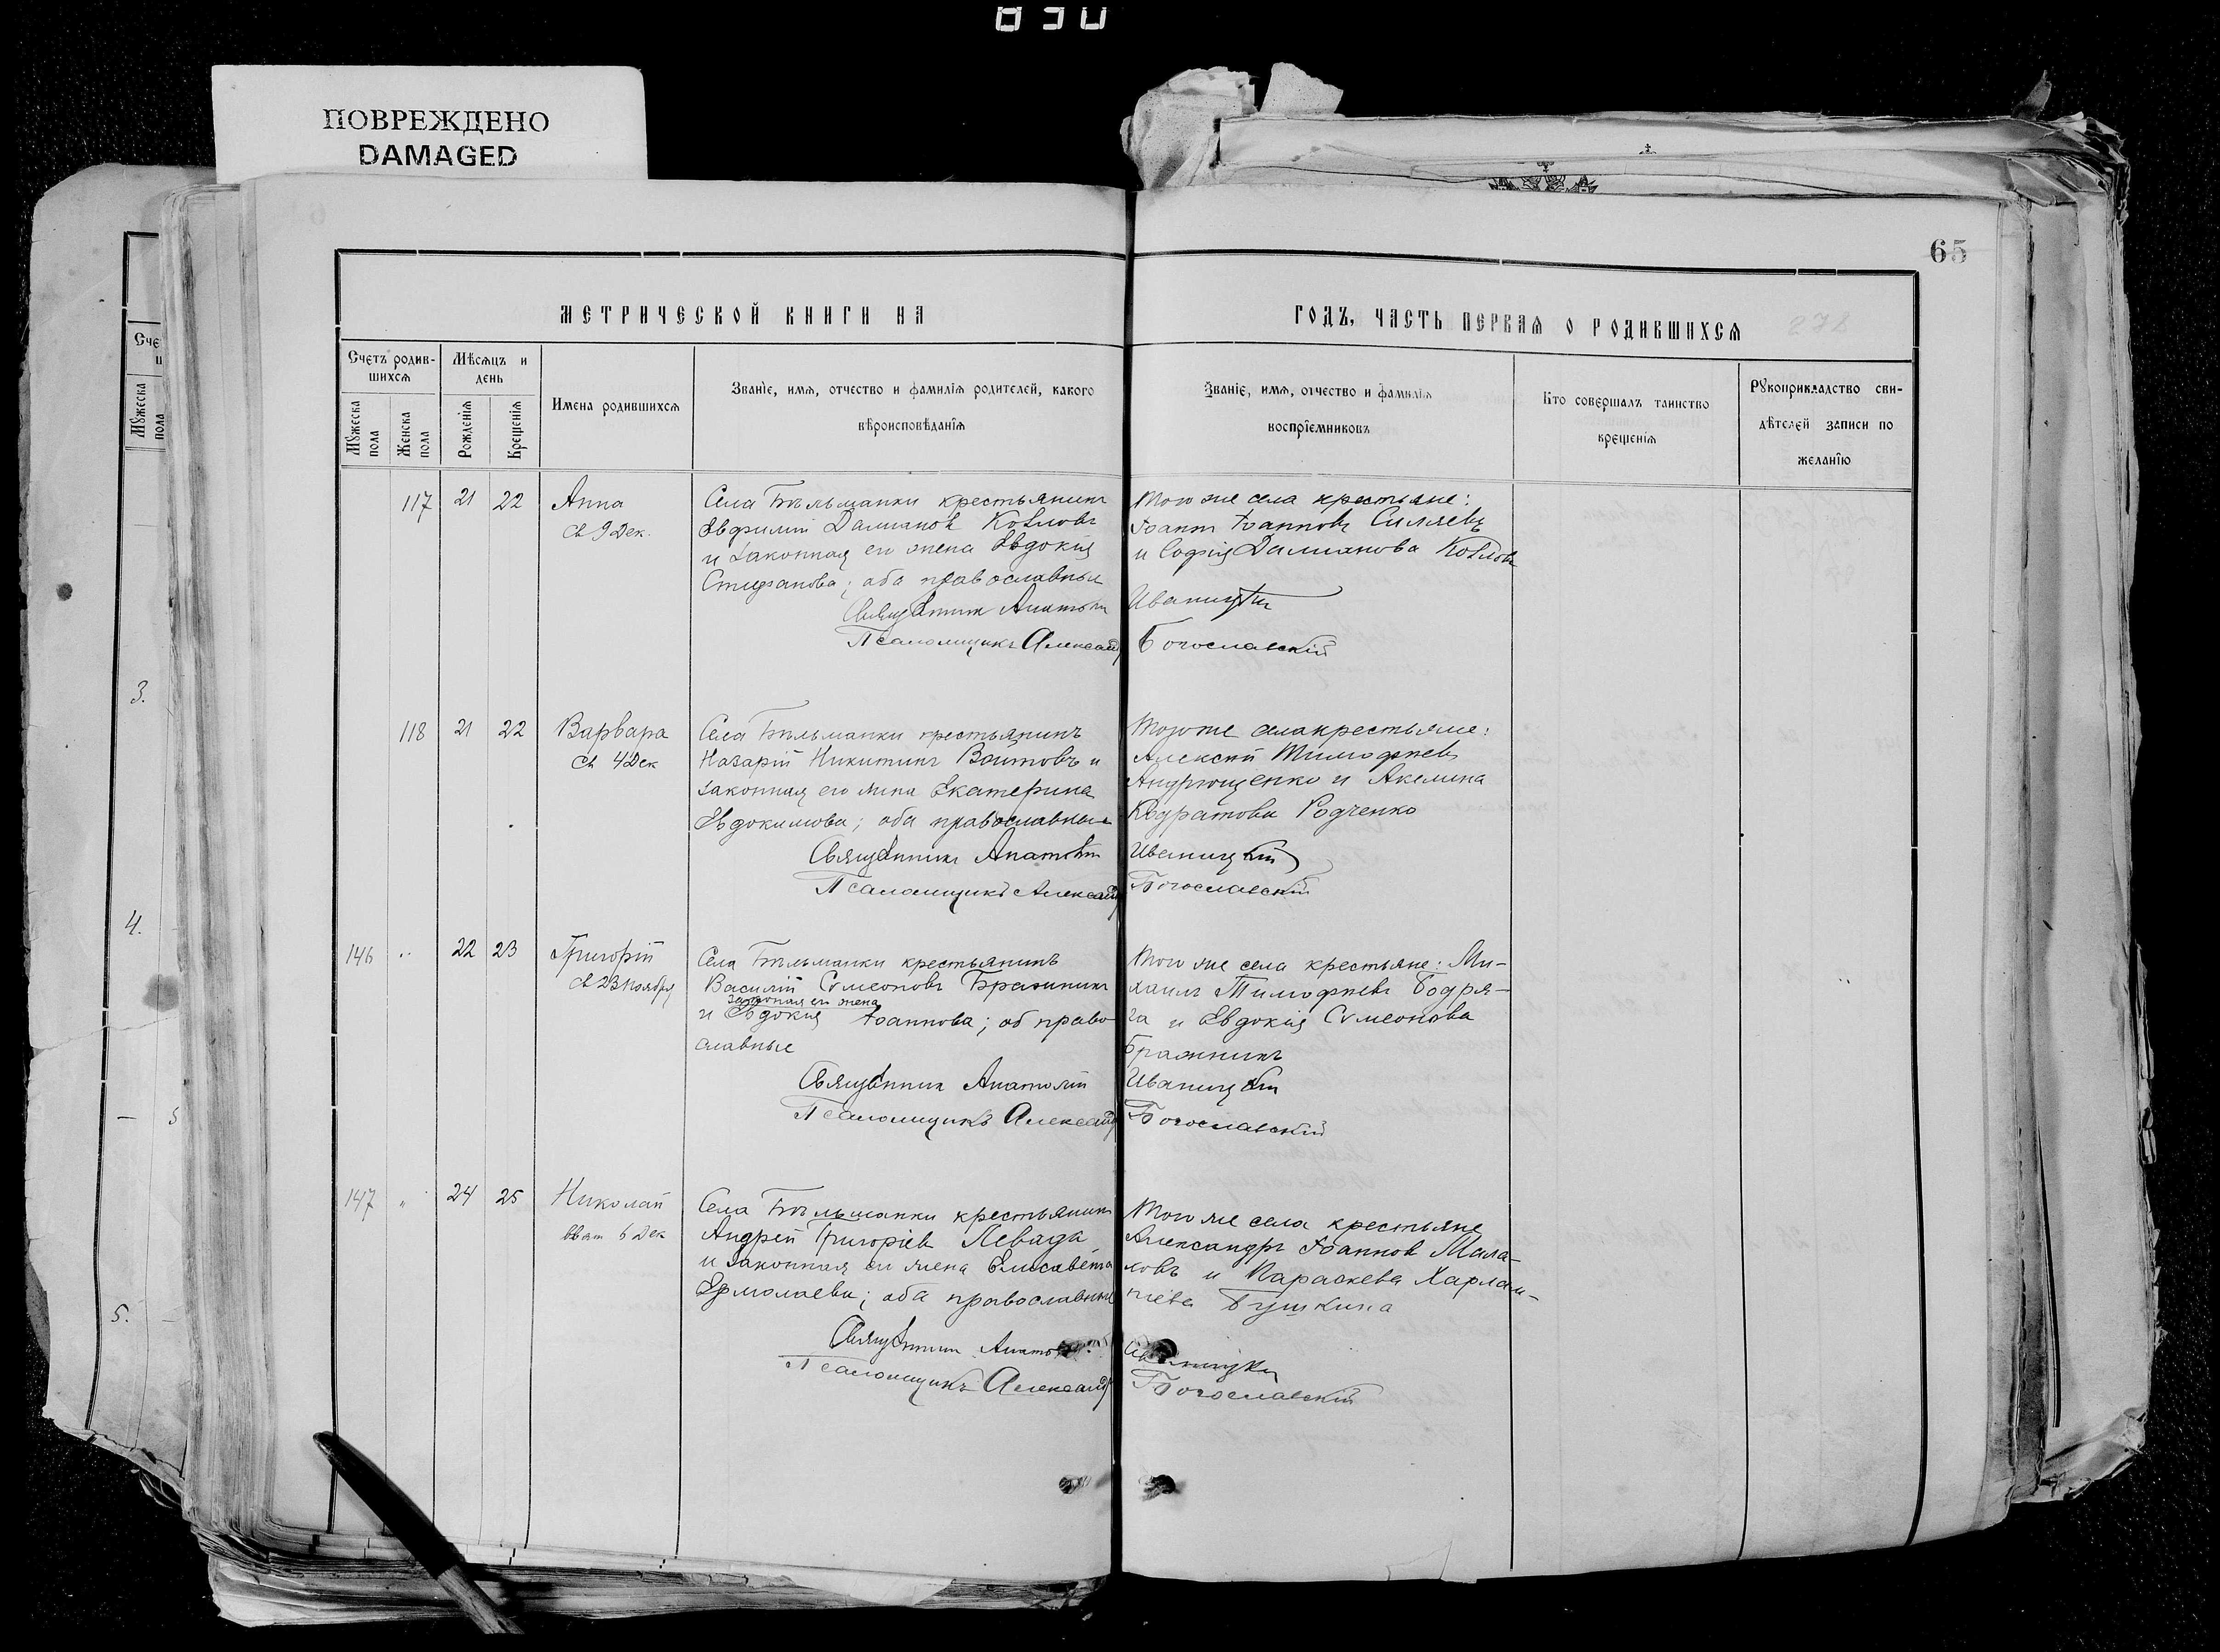 830
ПОВРЕЖДЕНО
DAMAGED
65
МЕТРИЧЕСКОЙ КНИГИ НА
ГОДЪ, ЧАСТЬ ПЕРВАЯ О РОДИВШИХСЯ
Счетъ родив-
шихся
Мѣсяцъ и
день
Мужеска
пола
Женска
пола
Рожденія
Крещенія
Имена родившихся
Званіе, имя, отчество и фамилія родителей, какого
вѣроисповѣданія
Званіе, имя, отчество и фамилія
воспріемниковъ
Кто совершалъ таинство
крещенія
Рукоприкладство сви-
дѣтелей записи по
желанію
117 21 22 Анна
св 9 Дек.
Села Бѣльманки крестьянинъ
Евфимій Даміановъ Козловъ
и законная его жена Евдокія
Стефанова; оба православные
Священникъ Анатолій
Псаломщикъ Александръ
Того же села крестьяне:
Іоаннъ Іоанновъ Силяевъ
и Софія Даміанова Козлова
Иваницкій
Богославскій
118 21 22 Варвара
св 4 Дек
Села Бѣльманки крестьянинъ
Назарій Никитинъ Воитовъ и
законная его жена Екатерина
Евдокимова; оба православные
Священникъ Анатолій
Псаломщикъ Александръ
Того же села крестьяне:
Алексѣй Тимофѣевъ
Андрющенко и Акелина
Кодратова Родченко
Иваницкій
Богославскій
146 " 22 23 Григорій
св 23 ноября
Села Бѣльманки крестьянинъ
Василій Сѵмеоновъ Бражникъ
законная его жена
и Евдокія Іоаннова; об право
славные
Священникъ Анатолій
Псаломщикъ Александръ
Того же села крестьяне: Ми-
хаилъ Тимофѣевъ Бодря-
га и Евдокія Сѵмеонова
Бражникъ
Иваницкій
Богославскій
147 " 24 25 Николай
6 Дек
Села Бѣльманки крестьянинъ
Андрей Григоріевъ Левада
и законная его жена Елисавета
Ермолаева; оба православные
Священникъ Анатолій
Псаломщикъ Александръ
Того же села крестьяне
Александръ Іоанновъ Мала-
ховъ и Параскева Харлам-
піева Бушкина
Иваницкій
Богославскій
Сче
Мужеска
пола
3.
4.
5.